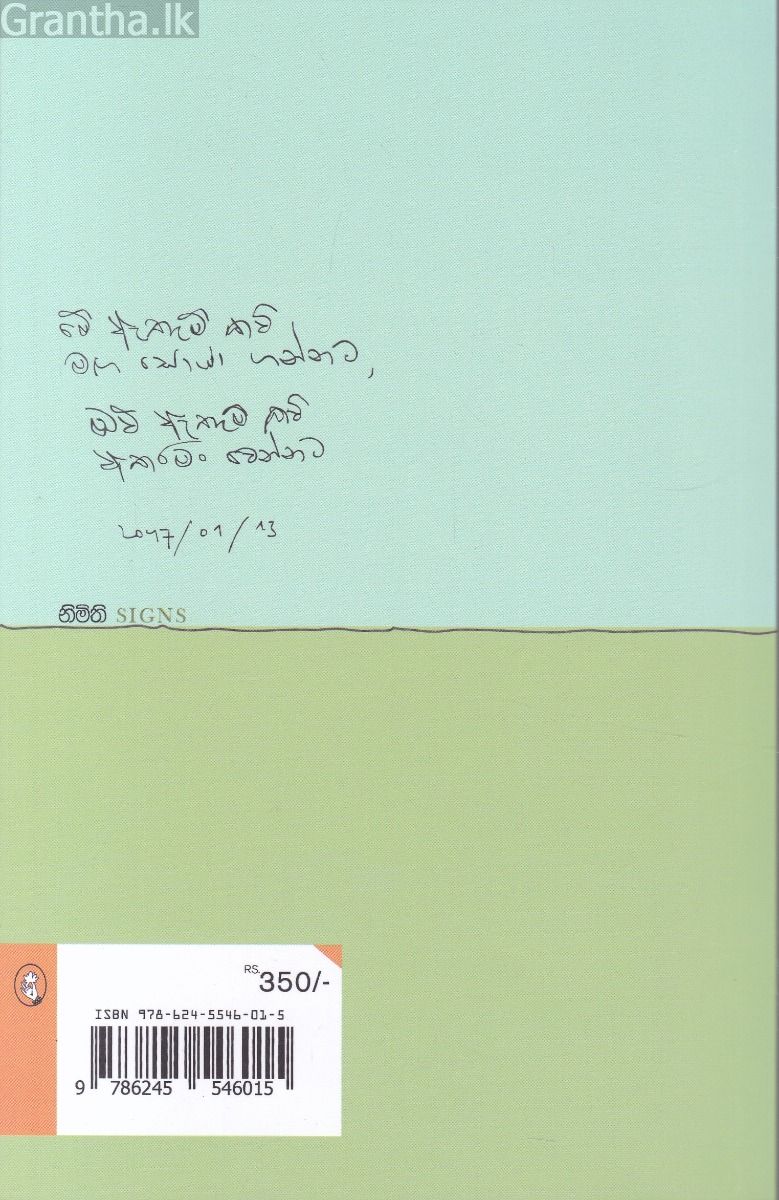 Grantha.lk
මේ ඇතැම් කවි
මඟ සොයා ගන්නට,
ඔබේ ඇතැම් කවි
අතරමං වෙන්නට
2017/01/13
නිමිති SIGNS
RS.350/-
ISBN 978-624-5546-01-5
9 786245 546015